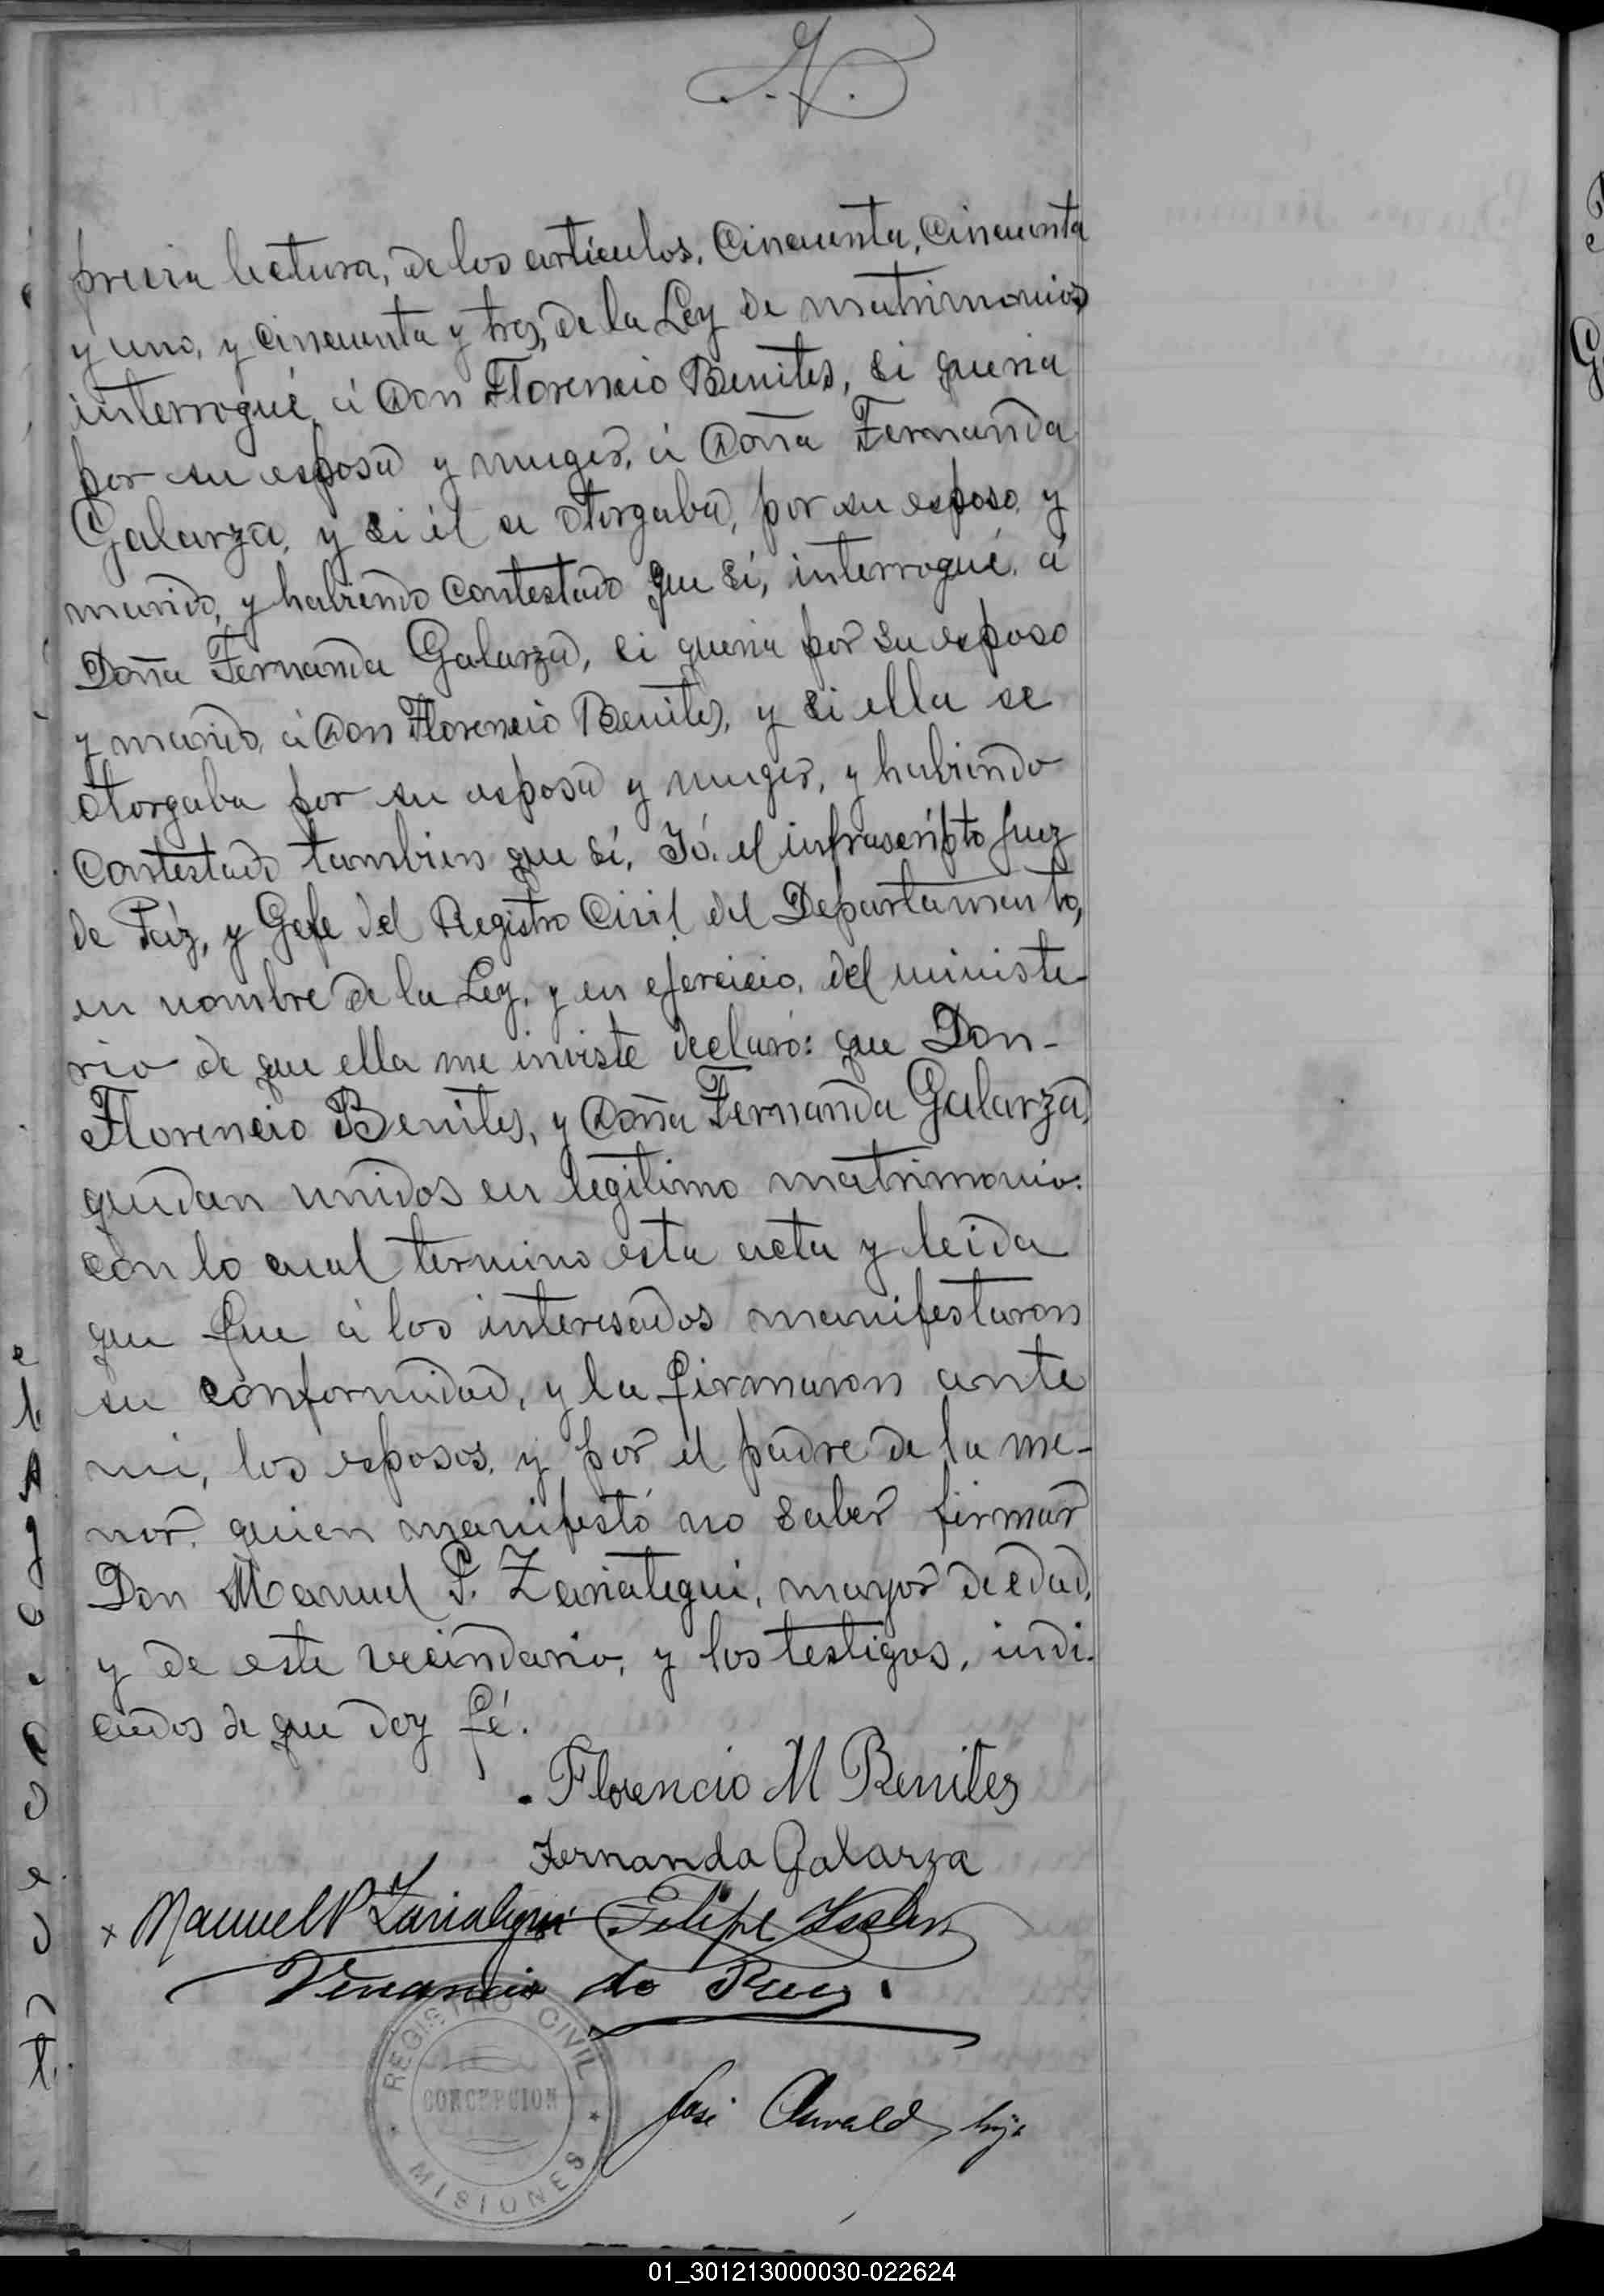 previa lectura, de los artículos, Cincuenta, Cincuenta
y uno, y cincuenta y tres, de la Ley de matrimonios
interrogué á Don Florencio Benites, si queria
por su esposa y muger, á Doña Fernanda
Galarza, y si él se otorgaba, por su esposo y
marido, y habiendo contestado que sí, interrogué, á
Doña Fernanda Galarza, si queria por su esposo
y marido, á Don Florencio Benites, y si ella se
otorgaba por su esposa y muger, y habiendo
contestado tambien que sí, Yó, el infrascripto Juez
de Páz, y Gefe del Registro Civil del Departamento,
en nombre de la Ley, y en ejercicio, del ministe-
rio de que ella me inviste declaró: que Don-
Florencio Benites, y Doña Fernanda Galarza,
quedan unidos en legitimo matrimonio:
con lo cual termino esta acta y leida
que fue á los interesados manifestaron
su conformidad, y la firmaron ante
mi, los esposos, y por el padre de la me-
nor, quien manifestó no saber firmar
Don Manuel P. Zariategui, mayor de edad,
y de este vecindario, y los testigos, indi-
cados de que doy fé.
Florencio M Benites
Fernanda Galarza
x Manuel P Zariategui Felipe
Venancio do
REGISTRO CIVIL
CONCEPCION
MISIONES
José Oswald, hijo
01_301213000030-022624